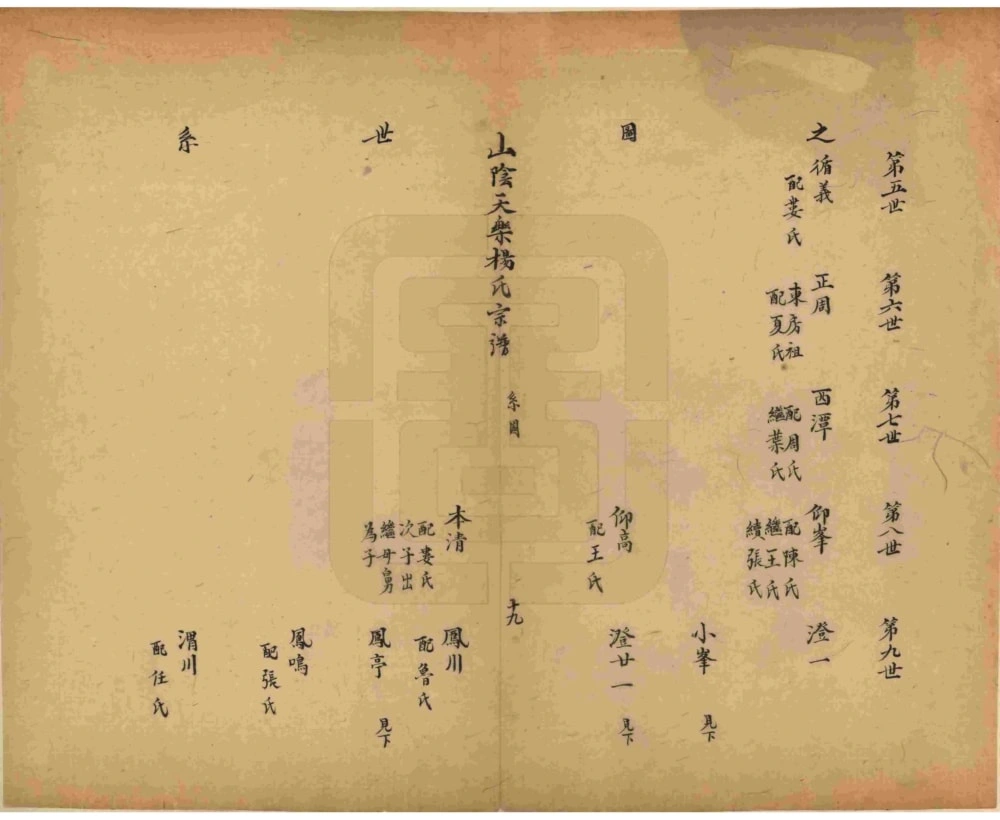 第五世
第六世
第七世
第八世
第九世
之
圖
世
系
循義
配婁氏
正周
東房祖
配夏氏
西潭
配周氏
繼葉氏
仰峯
配陳氏
繼王氏
續張氏
澄一
小峯
見下
仰高
配王氏
澄廿一
見下
山陰天樂楊氏宗譜
系圖
十九
本清
配婁氏
次子出
繼母舅
為子
鳳川
配魯氏
鳳亭
見下
鳳鳴
配張氏
渭川
配任氏